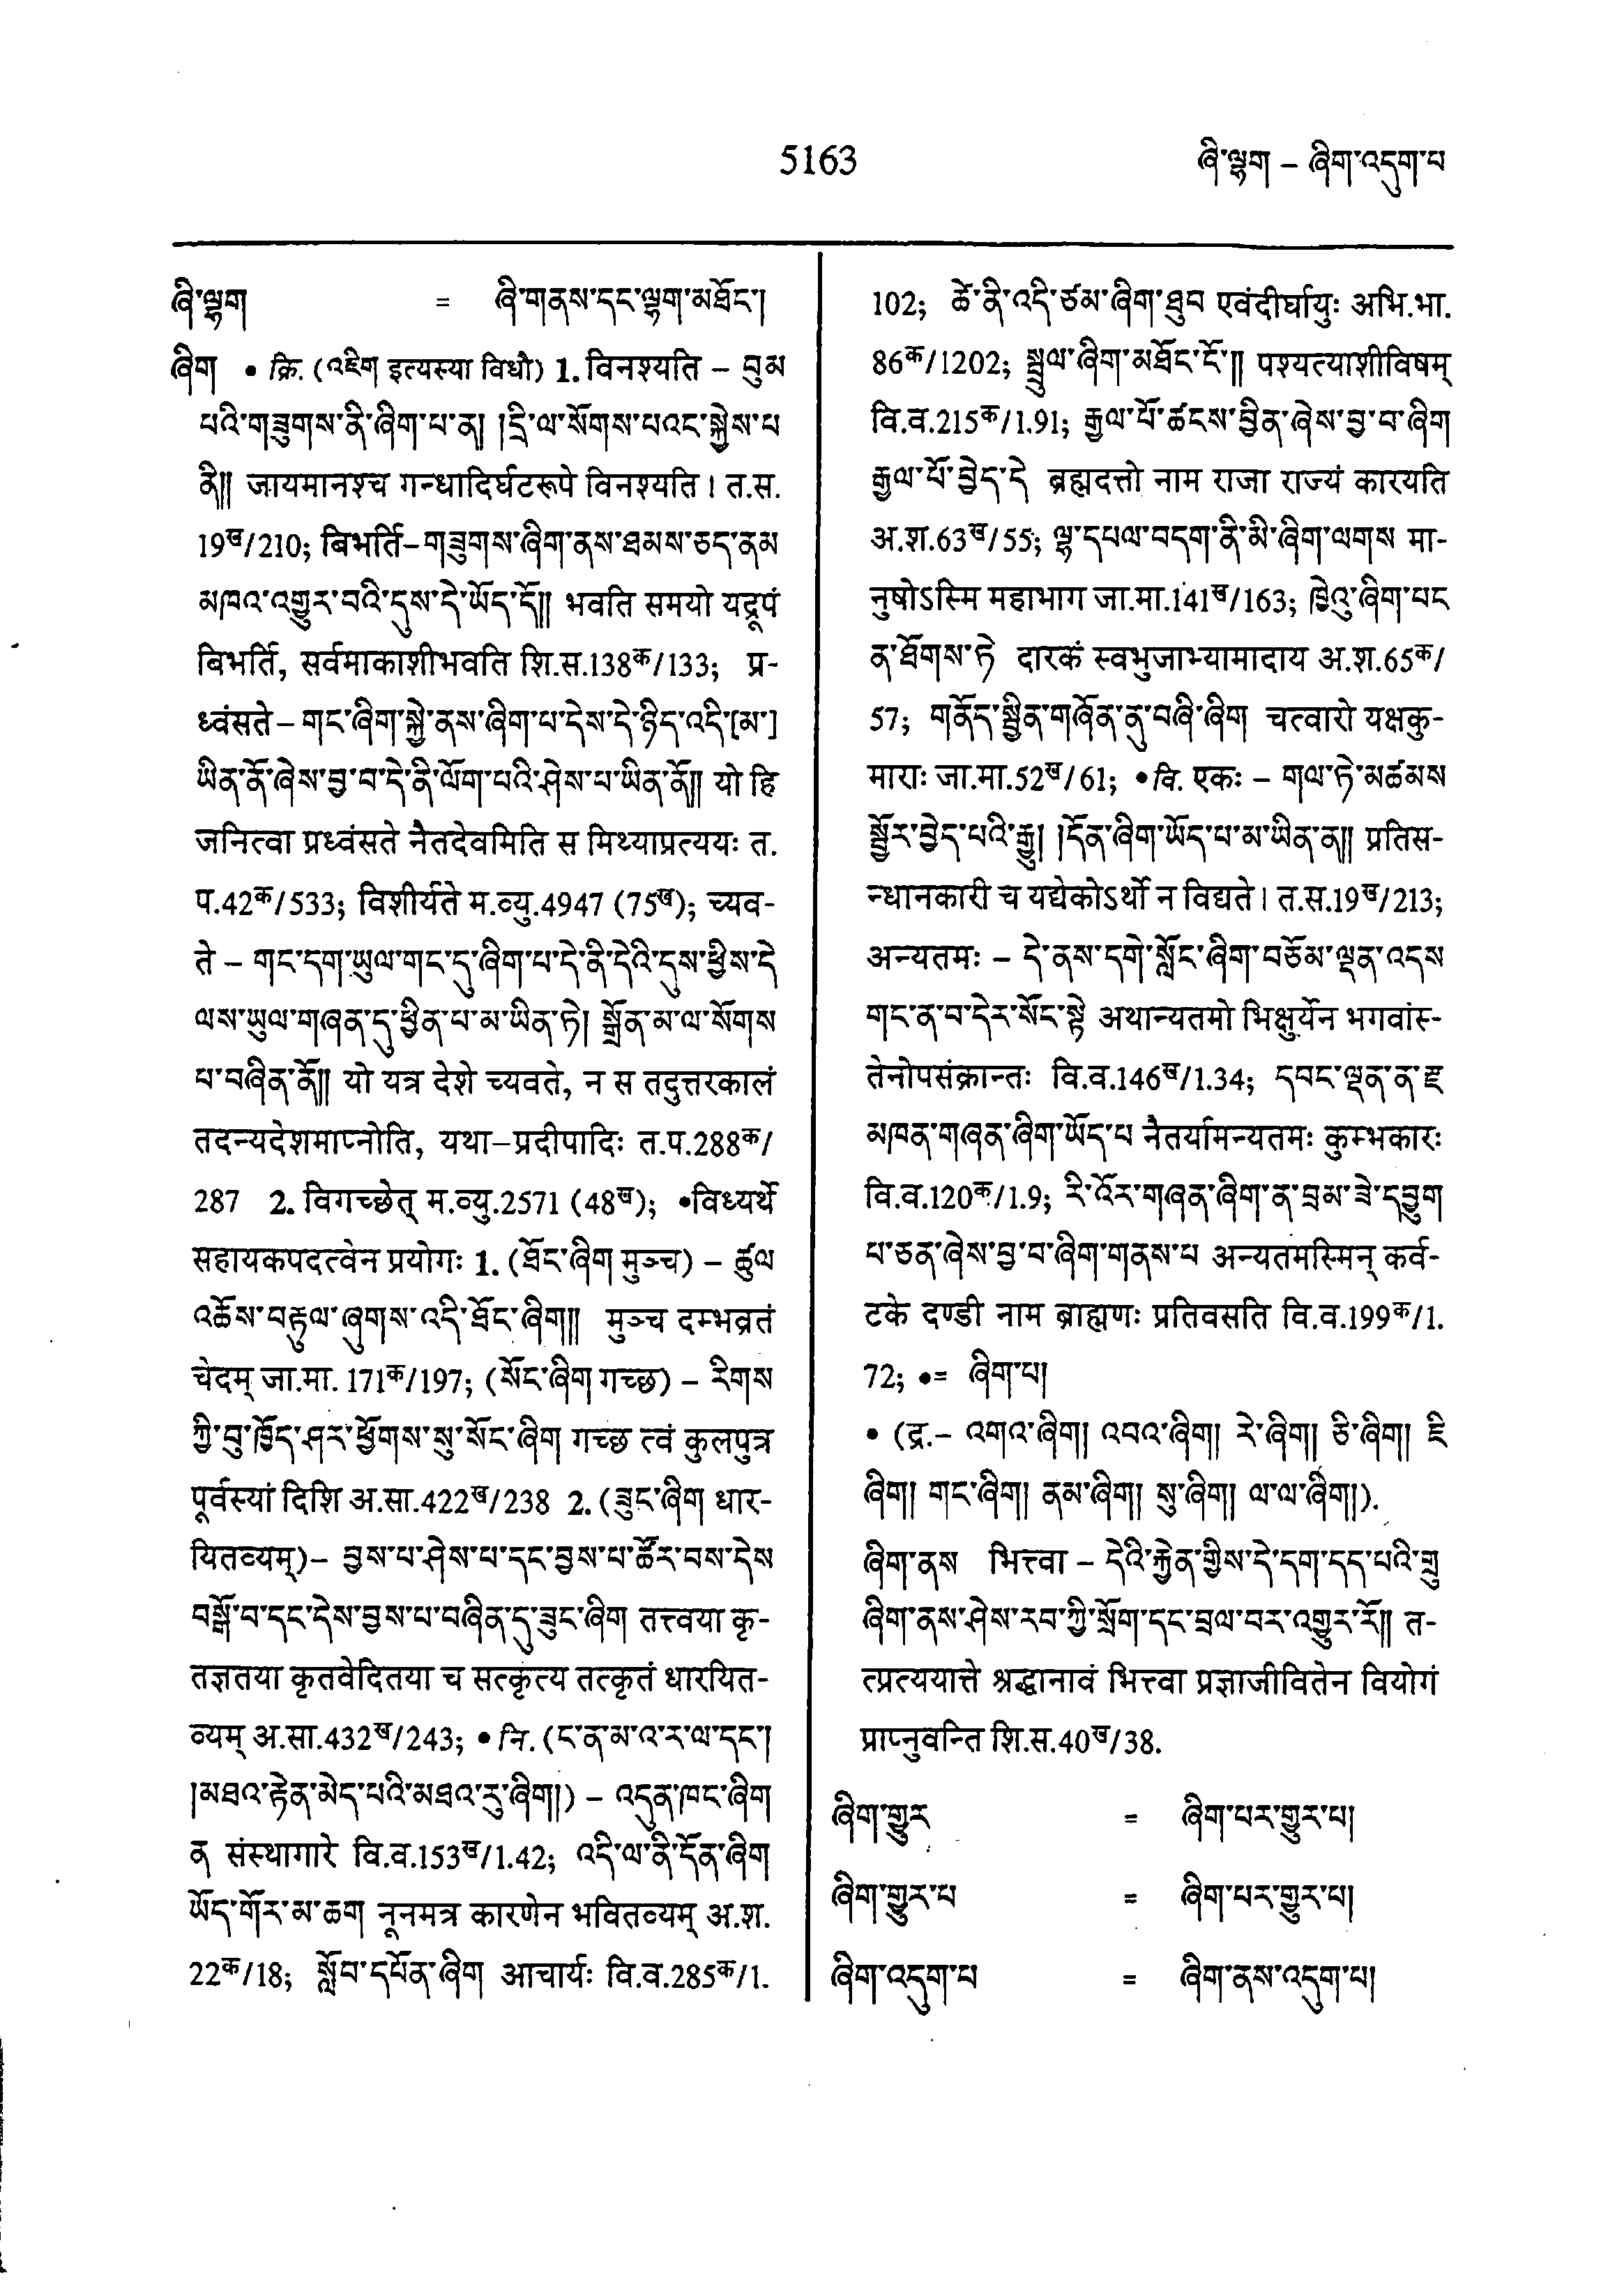 5163
ཞི་ལྷག – ཞིག་འདུག་པ
ཞི་ལྷག = ཞི་གནས་དང་ལྷག་མཐོང་།
ཞིག • क्रि. (འཇིག इत्यस्या विधौ) 1. विनश्यति – བུམ
པའི་གཟུགས་ནི་ཞིག་པ་ན། །དྲི་ལ་སོགས་པའང་སྐྱེས་པ
ནི།། जायमानश्च गन्धादिर्घटरूपे विनश्यति । त.स.
19ख/210; बिभर्ति–གཟུགས་ཞིག་ནས་ཐམས་ཅད་ནམ
མཁའ་འགྱུར་བའི་དུས་དེ་ཡོད་དོ།། भवति समयो यद्रूपं
बिभर्ति, सर्वमाकाशीभवति शि.स.138क/133; प्र-
ध्वंसते – གང་ཞིག་སྐྱེ་ནས་ཞིག་པ་དེས་དེ་ཉིད་འདི་[མ་]
ཡིན་ནོ་ཞེས་བྱ་བ་དེ་ནི་ལོག་པའི་ཤེས་པ་ཡིན་ནོ།། यो हि
जनित्वा प्रध्वंसते नैतदेवमिति स मिथ्याप्रत्ययः त.
प.42क/533; विशीर्यते म.व्यु.4947 (75ख); च्यव-
ते – གང་དག་ཡུལ་གང་དུ་ཞིག་པ་དེ་ནི་དེའི་དུས་ཕྱིས་དེ
ལས་ཡུལ་གཞན་དུ་ཕྱིན་པ་མ་ཡིན་ཏེ། སྒྲོན་མ་ལ་སོགས
པ་བཞིན་ནོ།། यो यत्र देशे च्यवते, न स तदुत्तरकालं
तदन्यदेशमाप्नोति, यथा–प्रदीपादिः त.प.288क/
287 2. विगच्छेत् म.व्यु.2571 (48ख); •विध्यर्थे
सहायकपदत्वेन प्रयोगः 1. (ཐོང་ཞིག मुञ्च) – ཚུལ
འཆོས་བརྟུལ་ཞུགས་འདི་ཐོང་ཞིག།། मुञ्च दम्भव्रतं
चेदम् जा.मा. 171क/197; (སོང་ཞིག गच्छ) – རིགས
ཀྱི་བུ་ཁྱོད་ཤར་ཕྱོགས་སུ་སོང་ཞིག गच्छ त्वं कुलपुत्र
पूर्वस्यां दिशि अ.सा.422ख/238 2. (ཟུང་ཞིག धार-
यितव्यम्)– བྱས་པ་ཤེས་པ་དང་བྱས་པ་ཚོར་བས་དེས
བསྒོ་བ་དང་དེས་བྱས་པ་བཞིན་དུ་ཟུང་ཞིག तत्त्वया कृ-
तज्ञतया कृतवेदितया च सत्कृत्य तत्कृतं धारयित-
व्यम् अ.सा.432ख/243; • नि. (ང་ན་མ་འ་ར་ལ་དང་།
།མཐའ་རྟེན་མེད་པའི་མཐའ་རུ་ཞིག།) – འདུན་ཁང་ཞིག
ན संस्थागारे वि.व.153ख/1.42; འདི་ལ་ནི་དོན་ཞིག
ཡོད་གོར་མ་ཆག नूनमत्र कारणेन भवितव्यम् अ.श.
22क/18; སློབ་དཔོན་ཞིག आचार्यः वि.व.285क/1.
102; ཚེ་ནི་འདི་ཙམ་ཞིག་ཐུབ एवंदीर्घायुः अभि.भा.
86क/1202; སྦྲུལ་ཞིག་མཐོང་ངོ་།། पश्यत्याशीविषम्
वि.व.215क/1.91; རྒྱལ་པོ་ཚངས་བྱིན་ཞེས་བྱ་བ་ཞིག
རྒྱལ་པོ་བྱེད་དེ ब्रह्मदत्तो नाम राजा राज्यं कारयति
अ.श.63ख/55; ལྷ་དཔལ་བདག་ནི་མི་ཞིག་ལགས मा-
नुषोऽस्मि महाभाग जा.मा.141ख/163; ཁྱེའུ་ཞིག་པང
ན་ཐོགས་ཏེ दारकं स्वभुजाभ्यामादाय अ.श.65क/
57; གནོད་སྦྱིན་གཞོན་ནུ་བཞི་ཞིག चत्वारो यक्षकु-
माराः जा.मा.52ख/61; •वि. एकः – གལ་ཏེ་མཚམས
སྦྱོར་བྱེད་པའི་རྒྱུ། །དོན་ཞིག་ཡོད་པ་མ་ཡིན་ན།། प्रतिस-
न्धानकारी च यद्येकोऽर्थो न विद्यते । त.स.19ख/213;
अन्यतमः – དེ་ནས་དགེ་སློང་ཞིག་བཅོམ་ལྡན་འདས
གང་ན་བ་དེར་སོང་སྟེ अथान्यतमो भिक्षुर्येन भगवांस्-
तेनोपसंक्रान्तः वि.व.146ख/1.34; དབང་ལྡན་ན་རྫ
མཁན་གཞན་ཞིག་ཡོད་པ नैतर्यामन्यतमः कुम्भकारः
वि.व.120क/1.9; རི་འོར་གཞན་ཞིག་ན་བྲམ་ཟེ་དབྱུག
པ་ཅན་ཞེས་བྱ་བ་ཞིག་གནས་པ अन्यतमस्मिन् कर्व-
टके दण्डी नाम ब्राह्मणः प्रतिवसति वि.व.199क/1.
72; •= ཞིག་པ།
• (द्र.– འགའ་ཞིག། འབའ་ཞིག། རེ་ཞིག། ཅི་ཞིག། ཇི
ཞིག། གང་ཞིག། ནམ་ཞིག། སུ་ཞིག། ལ་ལ་ཞིག།).
ཞིག་ནས भित्त्वा – དེའི་རྐྱེན་གྱིས་དེ་དག་དད་པའི་གྲུ
ཞིག་ནས་ཤེས་རབ་ཀྱི་སྲོག་དང་བྲལ་བར་འགྱུར་རོ།། त-
त्प्रत्ययात्ते श्रद्धानावं भित्त्वा प्रज्ञाजीवितेन वियोगं
प्राप्नुवन्ति शि.स.40ख/38.
ཞིག་གྱུར = ཞིག་པར་གྱུར་པ།
ཞིག་གྱུར་པ = ཞིག་པར་གྱུར་པ།
ཞིག་འདུག་པ = ཞིག་ནས་འདུག་པ།